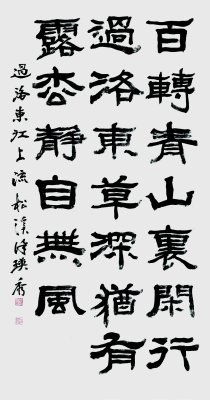 百轉青山裏閑行
過洛東草深猶有
露枀靜自無風
過洛東江上流 松